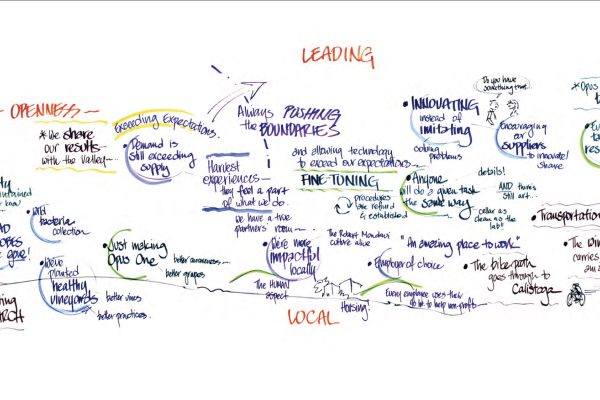 LEADING
OPENNESS
* We share
our results
with the Valley
Exceeding Expectations.
• Demand is
still exceeding
supply
Always PUSHING
the BOUNDARIES
and allowing technology
to exceed our expectations
Harvest
experiences
they feel a part
of what we do.
we have a hive
partners room
FINE-TUNING
procedures
are refined
& established
Do you have
something that...
• INNOVATING
instead of
imitating
solving
problems
Encouraging
our
suppliers
to innovate/
share
• Anyone
will do a given task
the same way
details!
AND there's
still art...
cellar as
clean as the
lab!
* OPUS
• wild
bacteria
collection
• We've
planted
healthy
vineyards
better vines
better practices.
• Just making
Opus One
better awareness
better grapes
The HUMAN
aspect
• We're more
impactful
locally
The Robert Mondavi
culture alive
"An amazing place to work"
• Employer of choice
Every employee uses their
to help non-profits
Housing!
• The bike path
goes through to
Calistoga
• Transportation
• The
carries
LOCAL